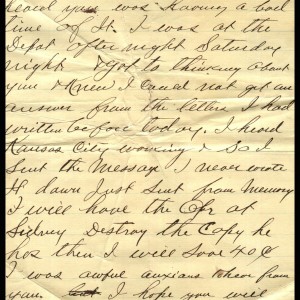 heard you was having a bad
time of It. I was at the
Depot after night Saturday
night & got to thinking about
you & Knew I could not get an
answer from the letter I had
written before today. I heard
Kansas City working & so I
Sent the Message I never wrote
It down Just Sent from Memory
I will have the Opr at
Sidney Destroy the Copy he
has then I will Save 40¢
I was awful auxians to hear from
you. I hope you will